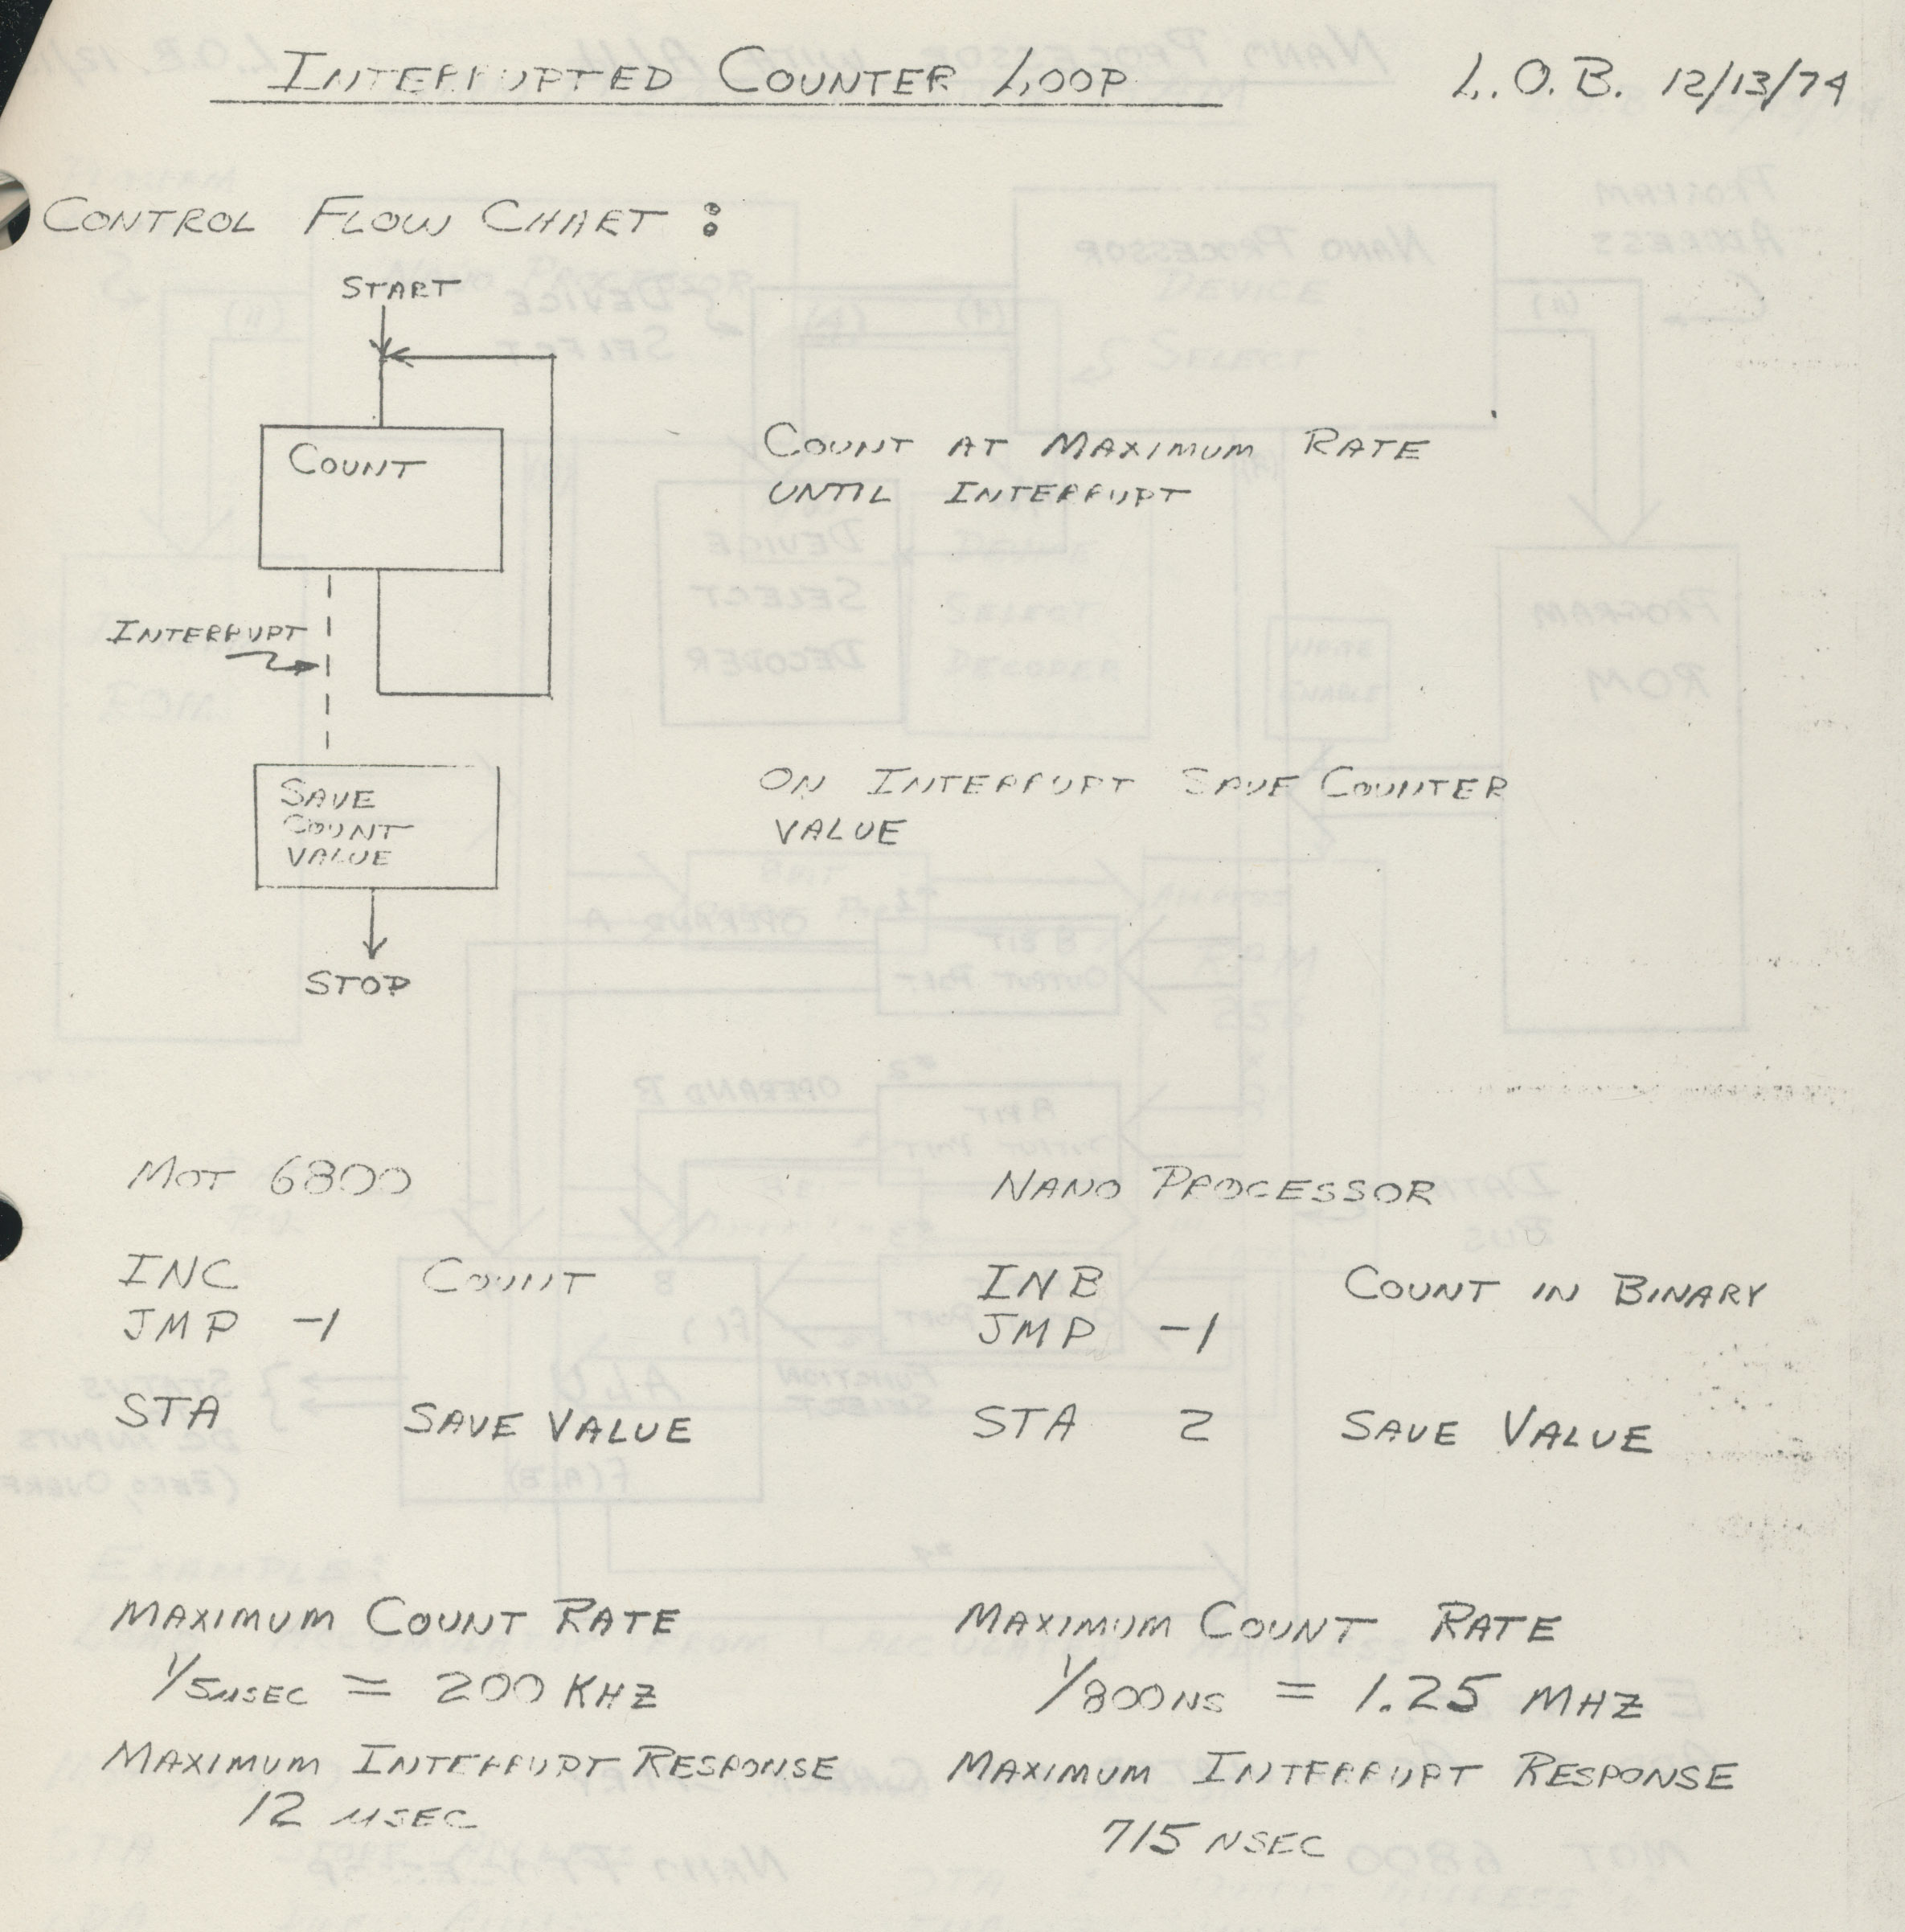 INTERRUPTED COUNTER LOOP
L.O.B. 12/13/74
CONTROL FLOW CHART :
START
COUNT
COUNT AT MAXIMUM RATE
UNTIL INTERRUPT
INTERRUPT
SAVE
COUNT
VALUE
ON INTERRUPT SAVE COUNTER
VALUE
STOP
MOT 6800
INC COUNT
JMP -1
STA SAVE VALUE
MAXIMUM COUNT RATE
1/5μSEC = 200 KHZ
MAXIMUM INTERRUPT RESPONSE
12 μSEC
NANO PROCESSOR
INB COUNT IN BINARY
JMP -1
STA 2 SAVE VALUE
MAXIMUM COUNT RATE
1/800NS = 1.25 MHZ
MAXIMUM INTERRUPT RESPONSE
715 NSEC